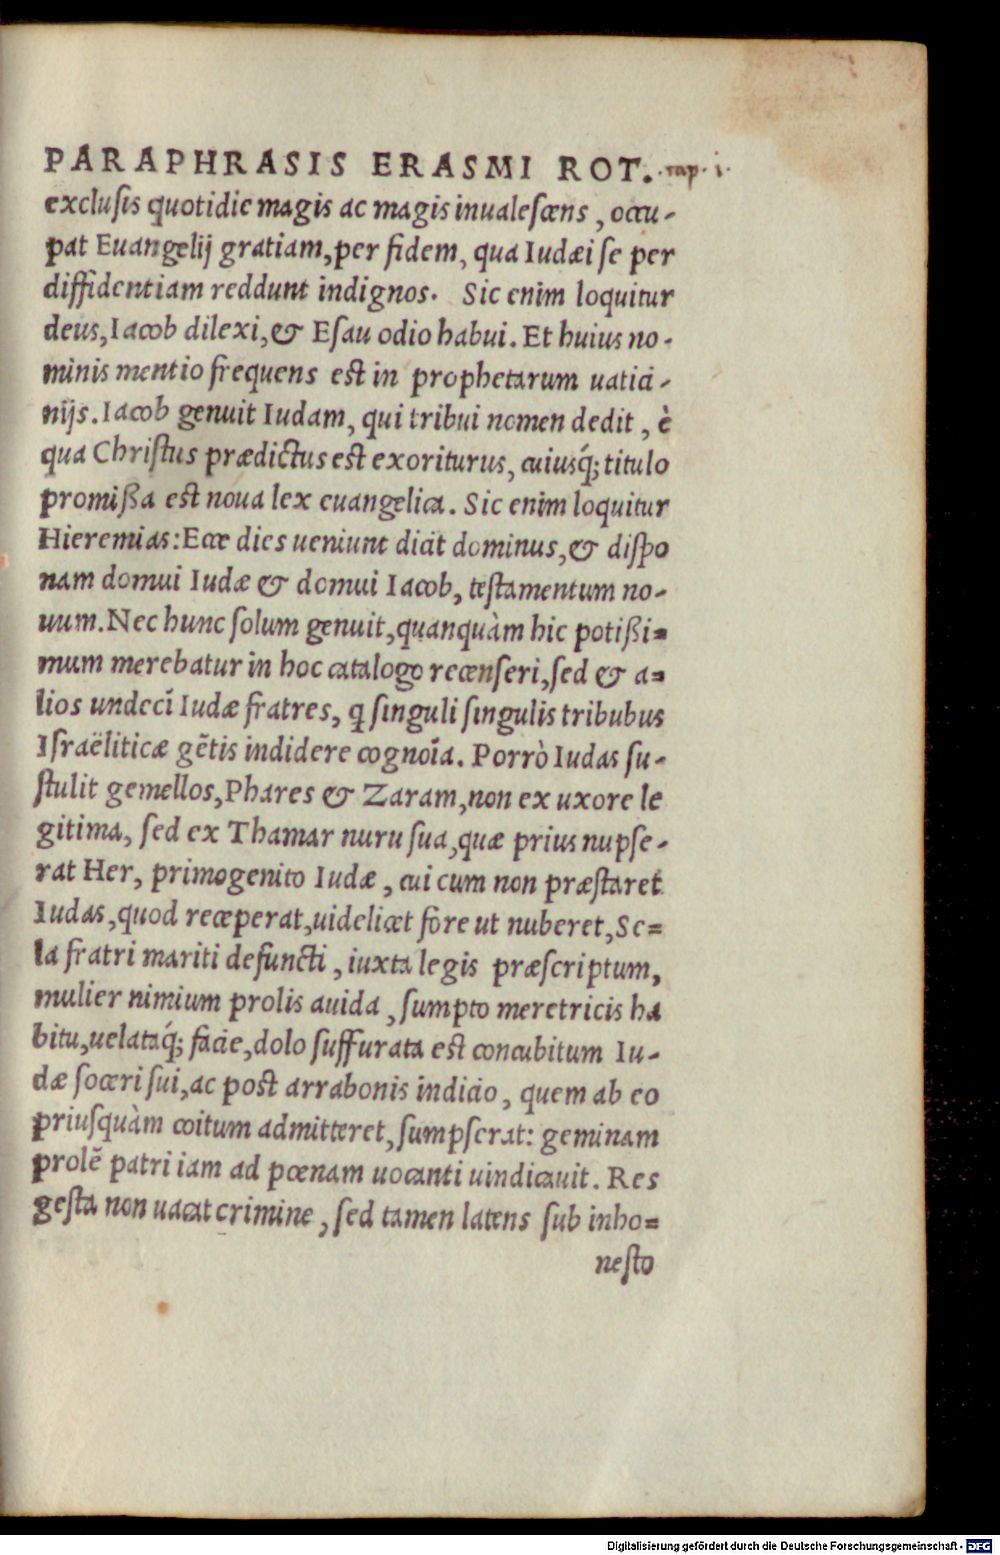 PARAPHRASIS ERASMI ROT. cap. i.
exclusis quotidie magis ac magis inualescens, occu-
pat Euangelij gratiam, per fidem, qua Iudæi se per
diffidentiam reddunt indignos. Sic enim loquitur
deus, Iacob dilexi, & Esau odio habui. Et huius no-
minis mentio frequens est in prophetarum uatici-
nijs. Iacob genuit Iudam, qui tribui nomen dedit, è
qua Christus prædictus est exoriturus, cuiusq́; titulo
promißa est noua lex euangelica. Sic enim loquitur
Hieremias: Ecce dies ueniunt dicit dominus, & dispo
nam domui Iudæ & domui Iacob, testamentum no-
uum. Nec hunc solum genuit, quanquàm hic potißi=
mum merebatur in hoc catalogo recenseri, sed & a=
lios undecī Iudæ fratres, q singuli singulis tribubus
Israëliticæ gētis indidere cognoīa. Porrò Iudas su-
stulit gemellos, Phares & Zaram, non ex uxore le
gitima, sed ex Thamar nuru sua, quæ prius nupse-
rat Her, primogenito Iudæ, cui cum non præstaret
Iudas, quod receperat, uidelicet fore ut nuberet, Se=
la fratri mariti defuncti, iuxta legis præscriptum,
mulier nimium prolis auida, sumpto meretricis ha
bitu, uelataq́; facie, dolo suffurata est concubitum Iu-
dæ soceri sui, ac post arrabonis indicio, quem ab eo
priusquàm coitum admitteret, sumpserat: geminam
prolē patri iam ad pœnam uocanti uindicauit. Res
gesta non uacat crimine, sed tamen latens sub inho=
nesto
Digitalisierung gefördert durch die Deutsche Forschungsgemeinschaft - DFG